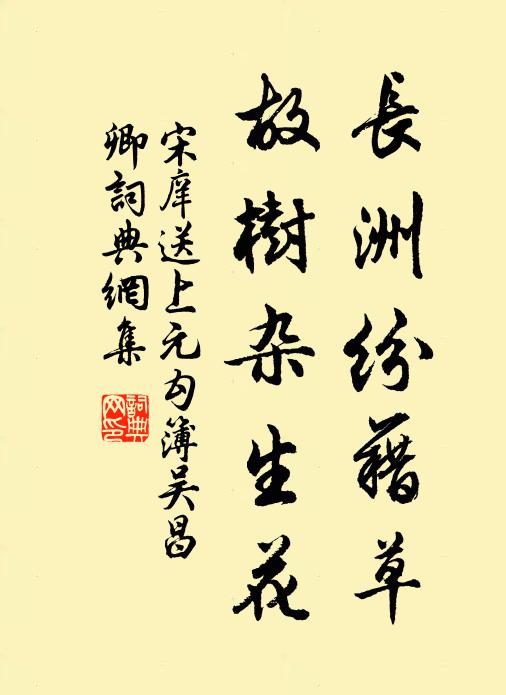 長洲紛藉草
故樹杂生花
宋庠送上元勾簿吳昌
卿詞典網集
詞典网印